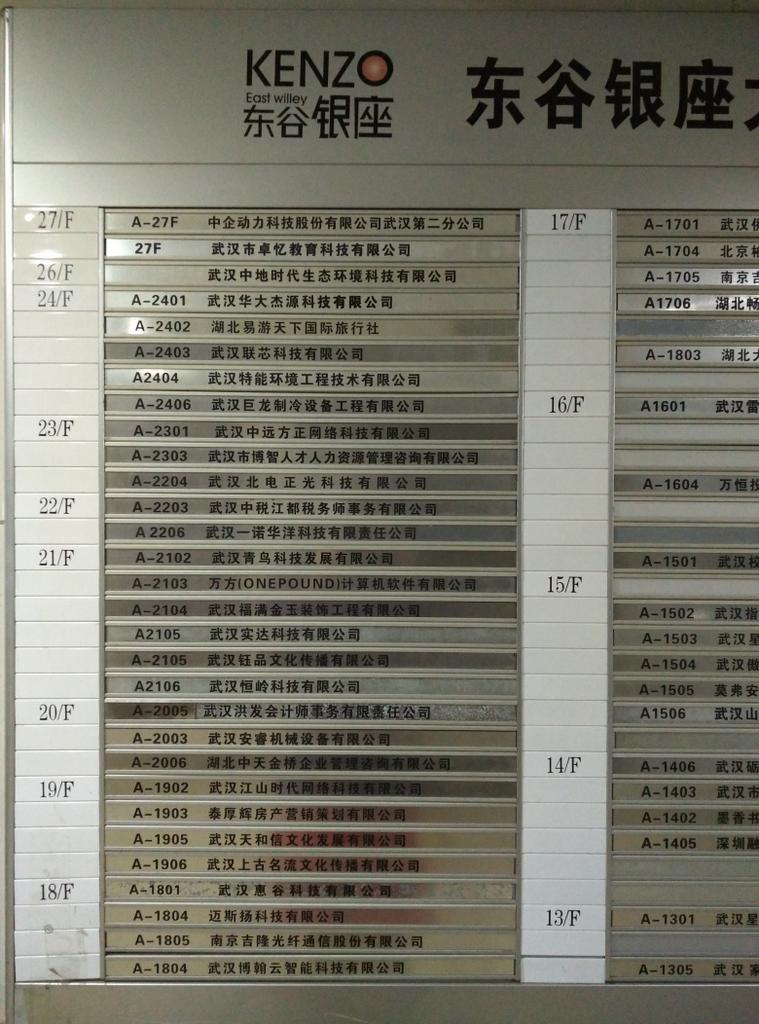 KENZO
East willey
东谷银座
东谷银座
27/F A-27F 中企动力科技股份有限公司武汉第二分公司
27F 武汉市卓忆教育科技有限公司
26/F 武汉中地时代生态环境科技有限公司
24/F A-2401 武汉华大杰源科技有限公司
A-2402 湖北易游天下国际旅行社
A-2403 武汉联芯科技有限公司
A2404 武汉特能环境工程技术有限公司
A-2406 武汉巨龙制冷设备工程有限公司
23/F A-2301 武汉中远方正网络科技有限公司
A-2303 武汉市博智人才人力资源管理咨询有限公司
A-2204 武汉北电正光科技有限公司
22/F A-2203 武汉中税江都税务师事务有限公司
A2206 武汉一诺华洋科技有限责任公司
21/F A-2102 武汉青鸟科技发展有限公司
A-2103 万方(ONEPOUND)计算机软件有限公司
A-2104 武汉福满金玉装饰工程有限公司
A2105 武汉实达科技有限公司
A-2105 武汉钰品文化传播有限公司
A2106 武汉恒岭科技有限公司
20/F A-2005 武汉洪发会计师事务有限责任公司
A-2003 武汉安睿机械设备有限公司
A-2006 湖北中天金桥企业管理咨询有限公司
19/F A-1902 武汉江山时代网络科技有限公司
A-1903 泰厚辉房产营销策划有限公司
A-1905 武汉天和信文化发展有限公司
A-1906 武汉上古名流文化传播有限公司
18/F A-1801 武汉惠谷科技有限公司
A-1804 迈斯扬科技有限公司
A-1805 南京吉隆光纤通信股份有限公司
A-1804 武汉博翰云智能科技有限公司
17/F A-1701 武汉
A-1704 北京
A-1705 南京吉
A1706 湖北畅
A-1803 湖北
16/F A1601 武汉雷
A-1604 万恒投
A-1501 武汉校
15/F
A-1502 武汉指
A-1503 武汉星
A-1504 武汉傲
A-1505 莫弗安
A1506 武汉山
14/F A-1406 武汉砺
A-1403 武汉市
A-1402 墨香书
A-1405 深圳融
13/F A-1301 武汉星
A-1305 武汉家